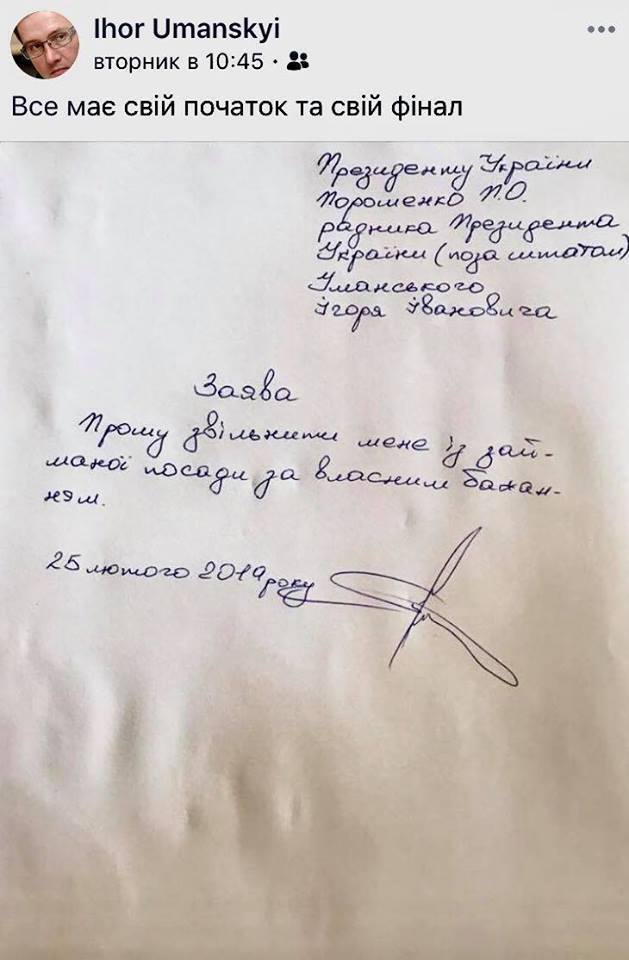 Ihor Umanskyi
вторник в 10:45 ·
Все має свій початок та свій фінал
Президенту України
Порошенко П.О.
радника Президента
України (поза штатом)
Уманського
Ігоря Івановича
Заява
Прошу звільнити мене із зай-
маної посади за власним бажан-
ням.
25 лютого 2019 року